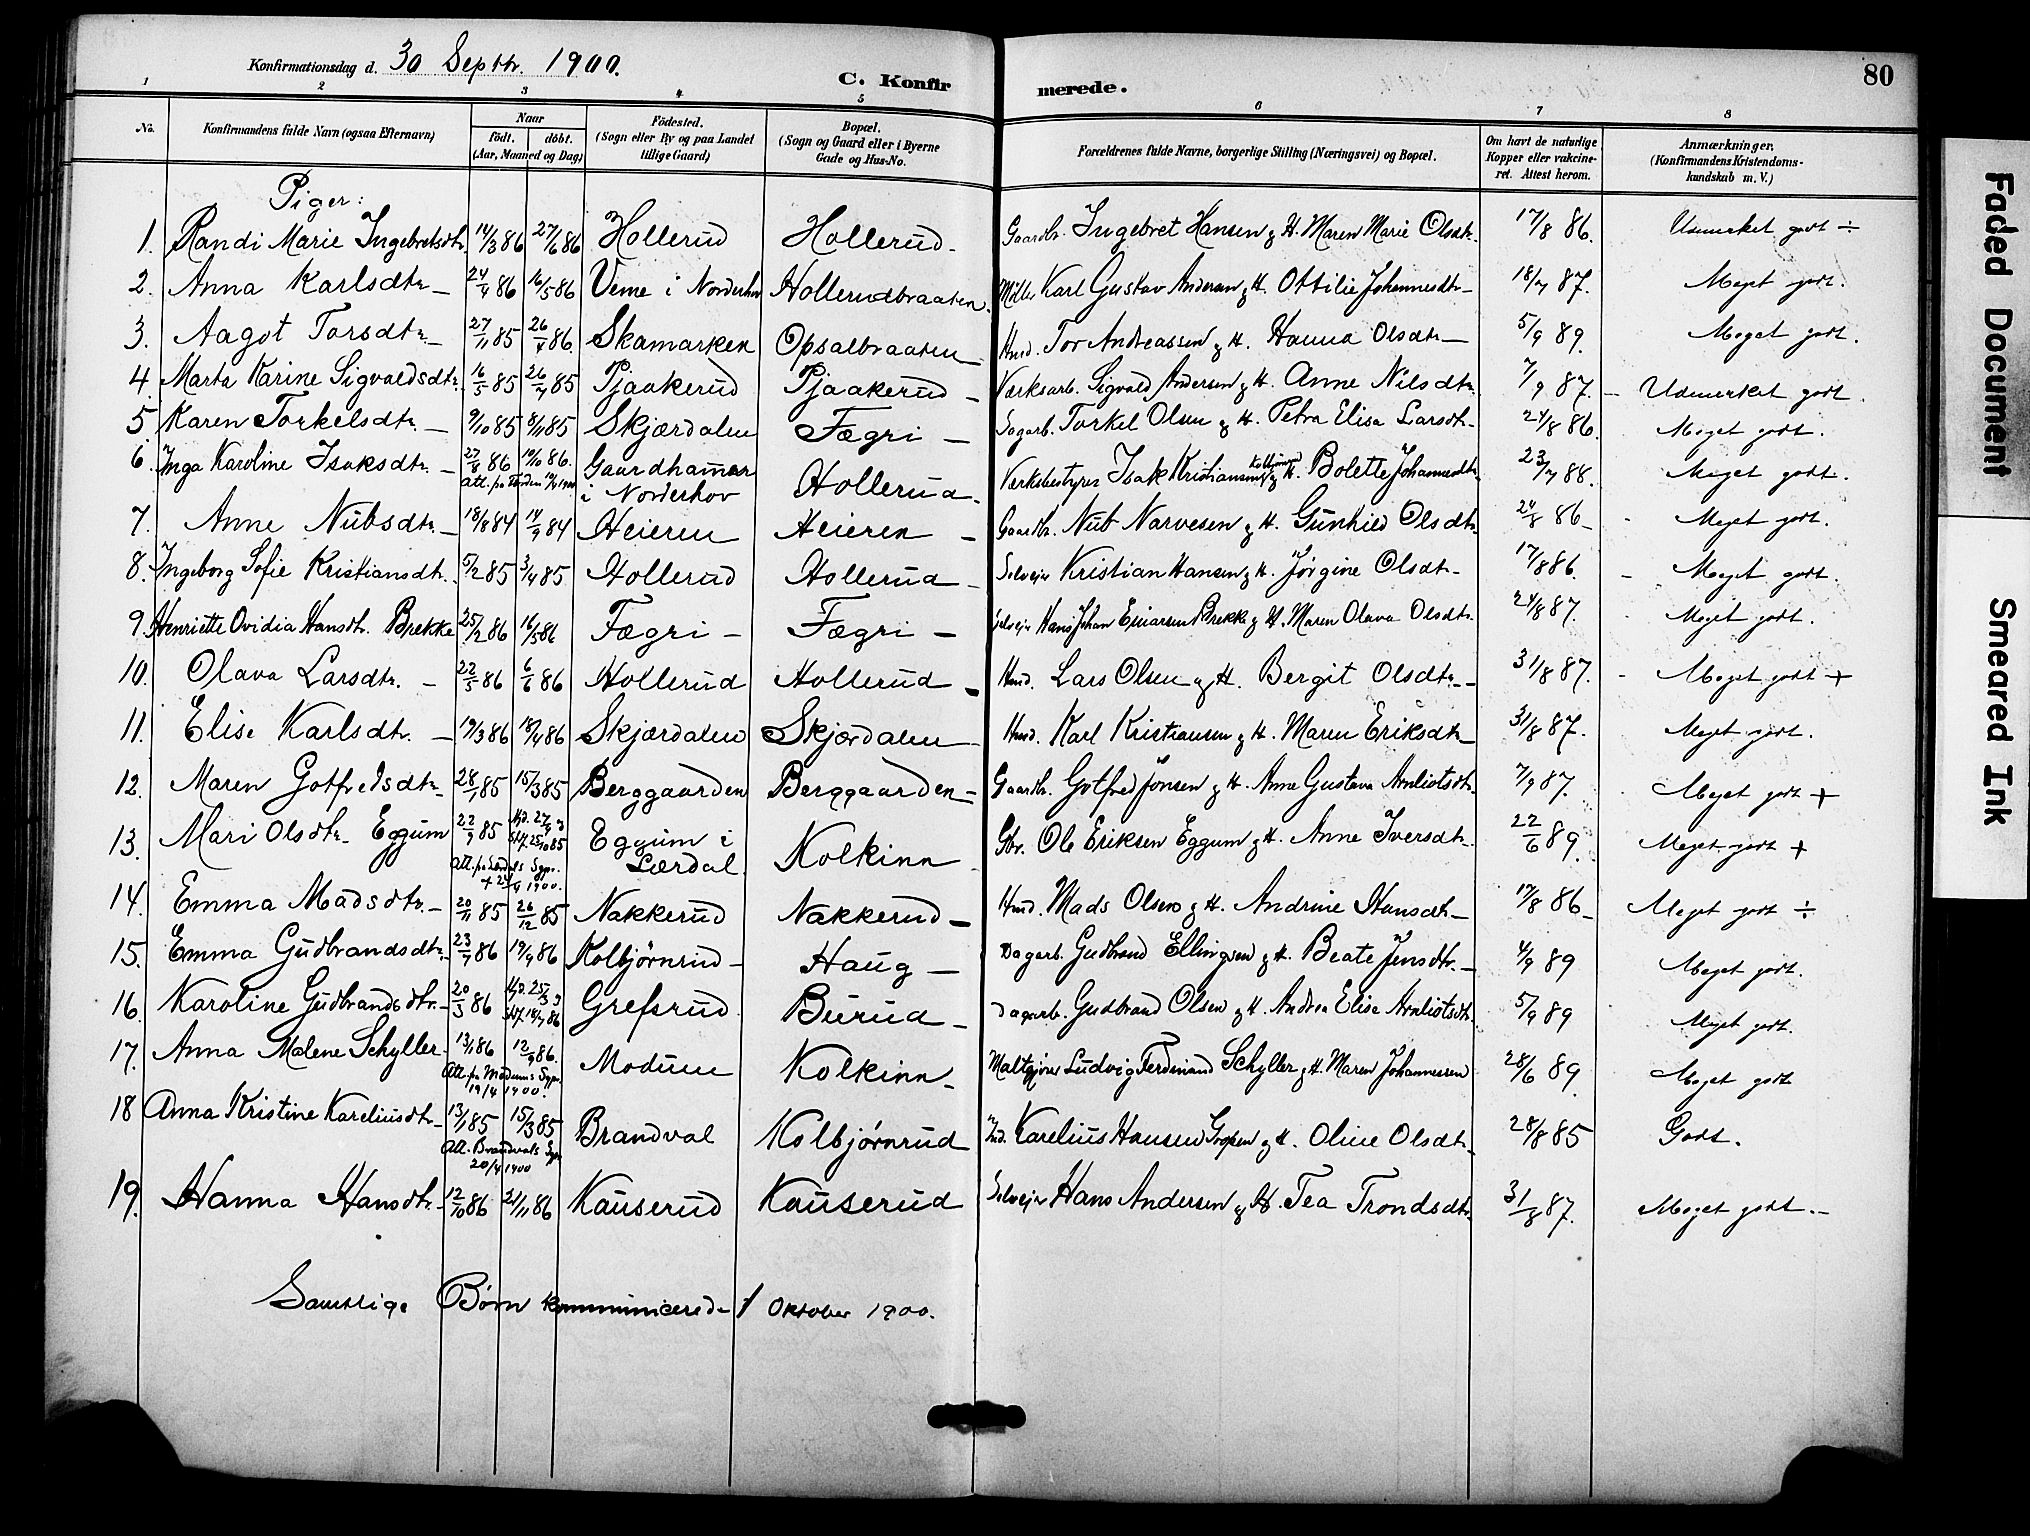 Konfirmationsdag d. 30 Septbr. 1900.
C. Konfirmerede.
80
1 2 3 4 5 6 7 8
No. Konfirmandens fulde Navn (ogsaa Efternavn) Naar födt. döbt. (Aar, Maaned og Dag) Födested. (Sogn eller By og paa Landet tillige Gaard) Bopæl. (Sogn og Gaard eller i Byerne Gade og Hus-No. Forældrenes fulde Navne, borgerlige Stilling (Næringsvei) og Bopæl. Om havt de naturlige Kopper eller vakcineret. Attest herom. Anmærkninger. (Konfirmandens Kristendomskundskab m. V.)
Piger:
1. Randi Marie Ingebretsdtr. 14/3 86 27/6 86 Hollerud Hollerud - Gaardbr. Ingebret Hansen og H. Maren Marie Olsdtr. 17/8 86. Udmerket godt ÷
2. Anna Karlsdtr. 24/4 86 16/5 86 Veme i Norderhov Hollerudbraaten. Möller Karl Gustav Andersen og H. Ottilie Johannesdtr. 18/7 87. Meget godt.
3. Aagot Torsdtr. 27/11 85 26/4 86. Skamarken Opsalbraaten Hmd. Tor Andreassen og H. Hanna Olsdtr. 5/9 89. Meget godt.
4. Marta Karine Sigvaldsdtr. 16/5 85 26/7 85 Pjaakerud Pjaakerud - Værksarb. Sigvald Andersen og H. Anne Nilsdtr. 7/9 87. Udmerket godt.
5 Karen Torkelsdtr. 9/10 85 8/11 85 Skjærdalen Fægri - Dagarb. Torkel Olsen og H. Petra Elise Larsdtr. 24/8 86. Meget godt.
6. Inga Karoline Isaksdtr. 27/8 86 10/10 86. Gaardhammer i Norderhov Hollerud. Verksbestyrer Isak Kristiansen og H. Bolette Johannesdtr. 23/7 88. Meget godt.
7. Anne Nubsdtr. 18/8 84 14/9 84 Heieren Heieren - Gaardbr. Nub Narvesen og H. Gunhild Olsdtr. 24/8 86 - Meget godt.
8. Ingeborg Sofie Kristiansdtr. 5/2 85 3/4 85 Hollerud Hollerud - Selveier Kristian Hansen og H. Jörgine Olsdtr. 17/8 86. - Meget godt.
9. Henriette Ovidia Hansdtr. Brekke 25/2 86 16/5 86 Fægri - Fægri - Selveier Hans Johan Einarsen Brekke og H. Maren Olava Olsdtr. 24/8 87. Meget godt.
10. Olava Larsdtr. - 22/5 86 6/6 86 Hollerud Hollerud - Hmd. Lars Olsen og H. Bergit Olsdtr. 31/8 87. - Meget godt +
11. Elise Karlsdtr. - 19/3 86 18/4 86 Skjærdalen Skjærdalen - Hmd. Karl Kristiansen og H. Maren Eriksdtr. 31/8 87. Meget godt.
12. Maren Gotfredsdtr. 28/1 85 15/3 85 Berggaarden Berggaarden - Gaardbr. Gotfred Jonsen og H. Anne Gustava Arnliotsdtr. 7/9 87. Meget godt +
13. Mari Olsdtr. Eggum 22/9 85 Hjd. 27/9 Stf. 25/10 85 Eggum i Lærdal. Kolkinn Gbr. Ole Eriksen Eggum og H. Anne Iversdtr. 22/6 89. Meget godt +
Att. fra Lærdals Sgpr. 1900.
14. Emma Madsdtr. - 20/11 85 26/12 85 Nakkerud Nakkerud - Hmd. Mads Olsen og H. Andrine Hansdtr. 17/8 86 - Meget godt ÷
15. Emma Gudbrandsdtr. 23/7 86 19/9 86 Kolbjørnrud - Haug - Dagarb. Gudbrand Ellingsen og H. Beate Jensdtr. 4/9 89 Meget godt.
16. Karoline Gudbrandsdtr. 20/3 86 Hjd. 25/3 Stf. 18/7 86 Grefsrud Burud - Dagarb. Gudbrand Olsen og H. Andrea Elise Arnliotsdtr. 5/9 89 Meget godt.
17. Anna Malene Schyller 13/1 86 12/9 86. Modum Kolkinn - Maltgjörer Ludvig Ferdinand Schyller og H. Maren Johannessen 28/6 89. Meget godt
Att. fra Modums Sgpr. 19/4 1900.
18 Anna Kristine Kareliusdtr. 13/1 85 15/3 85 Brandval Kolbjørnrud Ind. Karelius Hansen Gropen og H. Oline Olsdtr. 28/8 85 Godt.
Att. Brandvals Sgpr. 20/4 1900
19. Hanna Hansdtr. 12/10 86 21/11 86 Kauserud Kauserud Selveier Hans Andersen og H. Tea Trondsdtr. 31/8 87. Meget godt. -
Samtlige Børn kommunicerede 1 Oktober 1900.
Faded Document
Smeared Ink